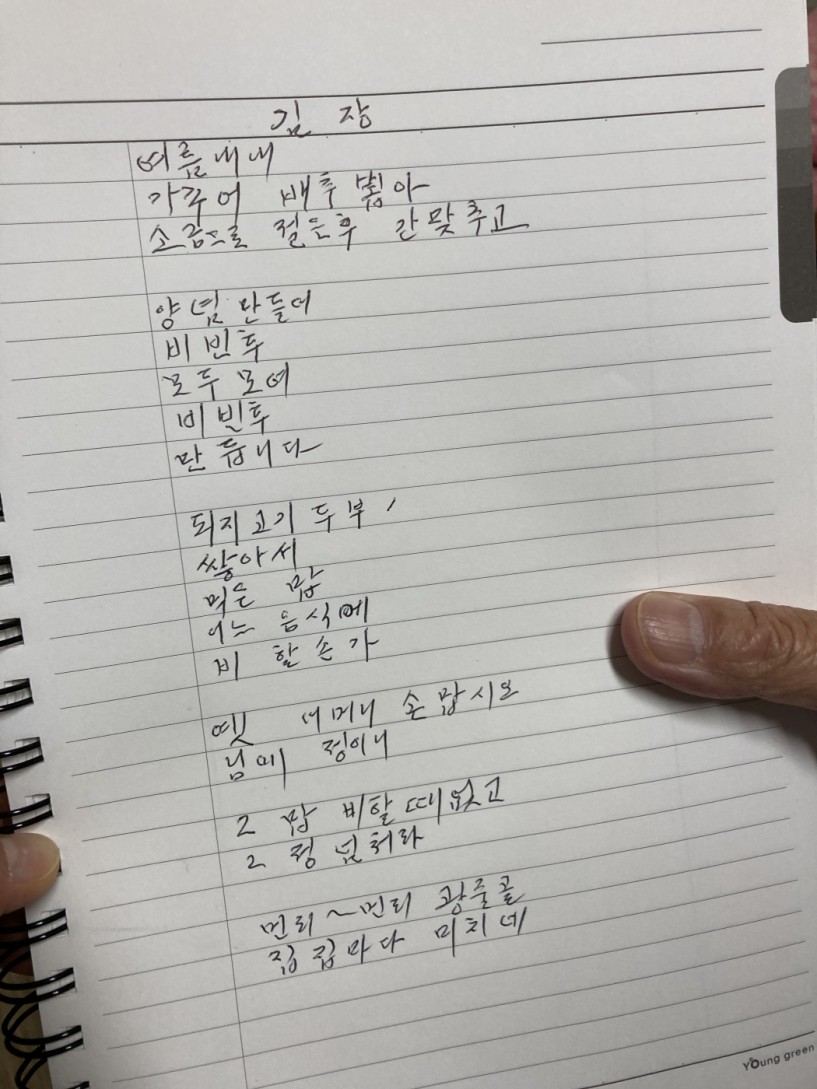 김 장
여름내내
가꾸어 배추 뽑아
소금으로 절는후 간맞추고
양념 만들어
비빈후
모두 모여
비빌후
만듭니다
되지고기 두부
쌂아서
먹는 맘
어느 음식에
비 할손가
옛 어머니 손맘시요
님의 정이니
그 맘 비할때없고
그 정 넘처라
먼리~먼리 광줄골
집집마다 미치네
Young green